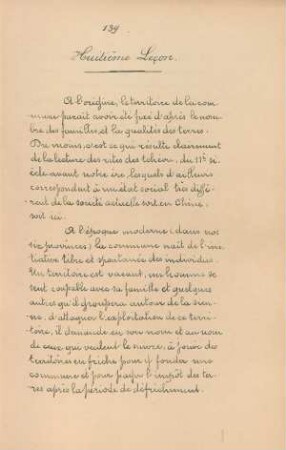 139
Huitième Leçon.
A l'origine, le territoire de la com-
mune paraît avoir été fixé d'après le nom-
bre des familles et la qualités des terres.
Du moins, c'est ce qui résulte clairement
de la lecture des rites des tcheou, du 11e siè-
cle avant notre ère, lesquels d'ailleurs
correspondent à un état social très diffé-
rent de la société actuelle soit en Chine,
soit ici.
A l'époque moderne (dans nos
six provinces) la commune naît de l'ini-
tiative libre et spontanée des individus.
Un territoire est vacant, un homme se
sent capable avec sa famille et quelques
autres qu'il groupera autour de la sien-
ne, d'attaquer l'exploitation de ce terri-
toire, il demande en son nom et au nom
de ceux qui veulent le suivre, à jouir du
territoire en friche pour y fonder une
commune et pour payer l'impôt des ter-
res après la période de défrichement.